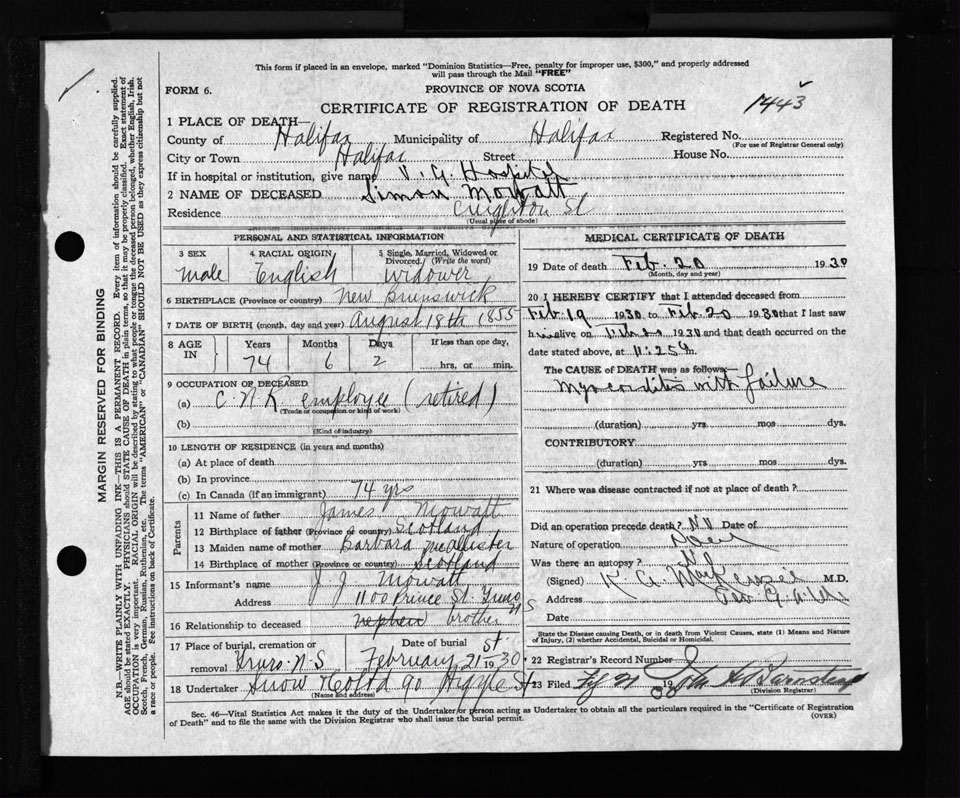 This form if placed in an envelope, marked "Dominion Statistics—Free, penalty for improper use, $300," and properly addressed
will pass through the Mail "FREE"
FORM 6.
PROVINCE OF NOVA SCOTIA
CERTIFICATE OF REGISTRATION OF DEATH
1443
1 PLACE OF DEATH—
County of Halifax Municipality of Halifax Registered No.
(For use of Registrar General only)
City or Town Halifax Street House No.
If in hospital or institution, give name V. G. Hospital
2 NAME OF DECEASED Simon Mowatt
Residence Creighton St
(Usual place of abode)
PERSONAL AND STATISTICAL INFORMATION
3 SEX 4 RACIAL ORIGIN 5 Single, Married, Widowed or Divorced (Write the word)
male English widower
6 BIRTHPLACE (Province or country) New Brunswick
7 DATE OF BIRTH (month, day and year) August 18th 1855
8 AGE IN Years Months Days If less than one day,
74 6 2 hrs. or min.
9 OCCUPATION OF DECEASED
(a) C.N.R employee (retired)
(Trade or occupation or kind of work)
(b)
(Kind of industry)
10 LENGTH OF RESIDENCE (in years and months)
(a) At place of death
(b) In province
(c) In Canada (if an immigrant) 74 yrs
Parents
11 Name of father James Mowatt
12 Birthplace of father (Province or country) Scotland
13 Maiden name of mother Barbara McAllister
14 Birthplace of mother (Province or country) Scotland
15 Informant's name J J Mowatt
Address 1100 Prince St. Truro N S
16 Relationship to deceased nephew brother
17 Place of burial, cremation or removal Truro. N.S Date of burial February 21st 1930
18 Undertaker Snow & Co Ltd 90 Argyle St
(Name and address)
MEDICAL CERTIFICATE OF DEATH
19 Date of death Feb. 20 1930
(Month, day and year)
20 I HEREBY CERTIFY that I attended deceased from
Feb. 19 1930 to Feb. 20 1930 that I last saw
him alive on Feb 20 1930 and that death occurred on
date stated above, at 11.25 m.
The CAUSE of DEATH was as follows:—
Myocarditis with failure
(duration) yrs mos dys.
CONTRIBUTORY
(duration) yrs mos dys.
21 Where was disease contracted if not at place of death?
Did an operation precede death? No Date of
Nature of operation
Was there an autopsy? No
(Signed) K A MacKenzie M.D.
Address
Date
State the Disease causing Death, or in death from Violent Causes, state (1) Means and Nature
of Injury, (2) whether Accidental, Suicidal or Homicidal.
22 Registrar's Record Number
23 Filed 19
(Division Registrar)
Sec. 46—Vital Statistics Act makes it the duty of the Undertaker or person acting as Undertaker to obtain all the particulars required in the "Certificate of Registration
of Death" and to file the same with the Division Registrar who shall issue the burial permit.
(OVER)
MARGIN RESERVED FOR BINDING
N.B.—WRITE PLAINLY WITH UNFADING INK—THIS IS A PERMANENT RECORD. Every item of information should be carefully supplied.
AGE should be stated EXACTLY. PHYSICIANS should STATE CAUSE OF DEATH in plain terms, so that it may be properly classified. Exact statement of
OCCUPATION is very important. RACIAL ORIGIN will be described by stating to what people or tongue the deceased person belonged, whether English, Irish,
Scotch, French, German, Russian, Ruthenian, etc. The terms "AMERICAN" or "CANADIAN" SHOULD NOT BE USED as they express citizenship but not
a race or people. See instructions on back of Certificate.